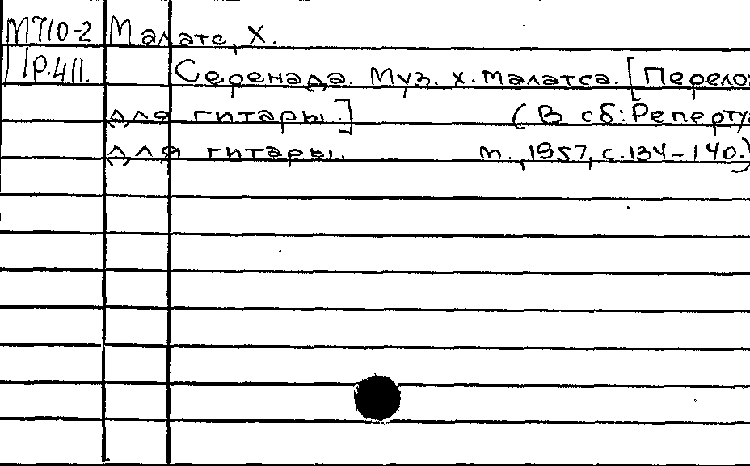 М710-2 Малатс, Х.
Пр.411. Серенада. Муз. Х. Малатса. [Перелож
для гитары.] (В сб: Реперту
для гитары. М., 1957, с.134-140.)